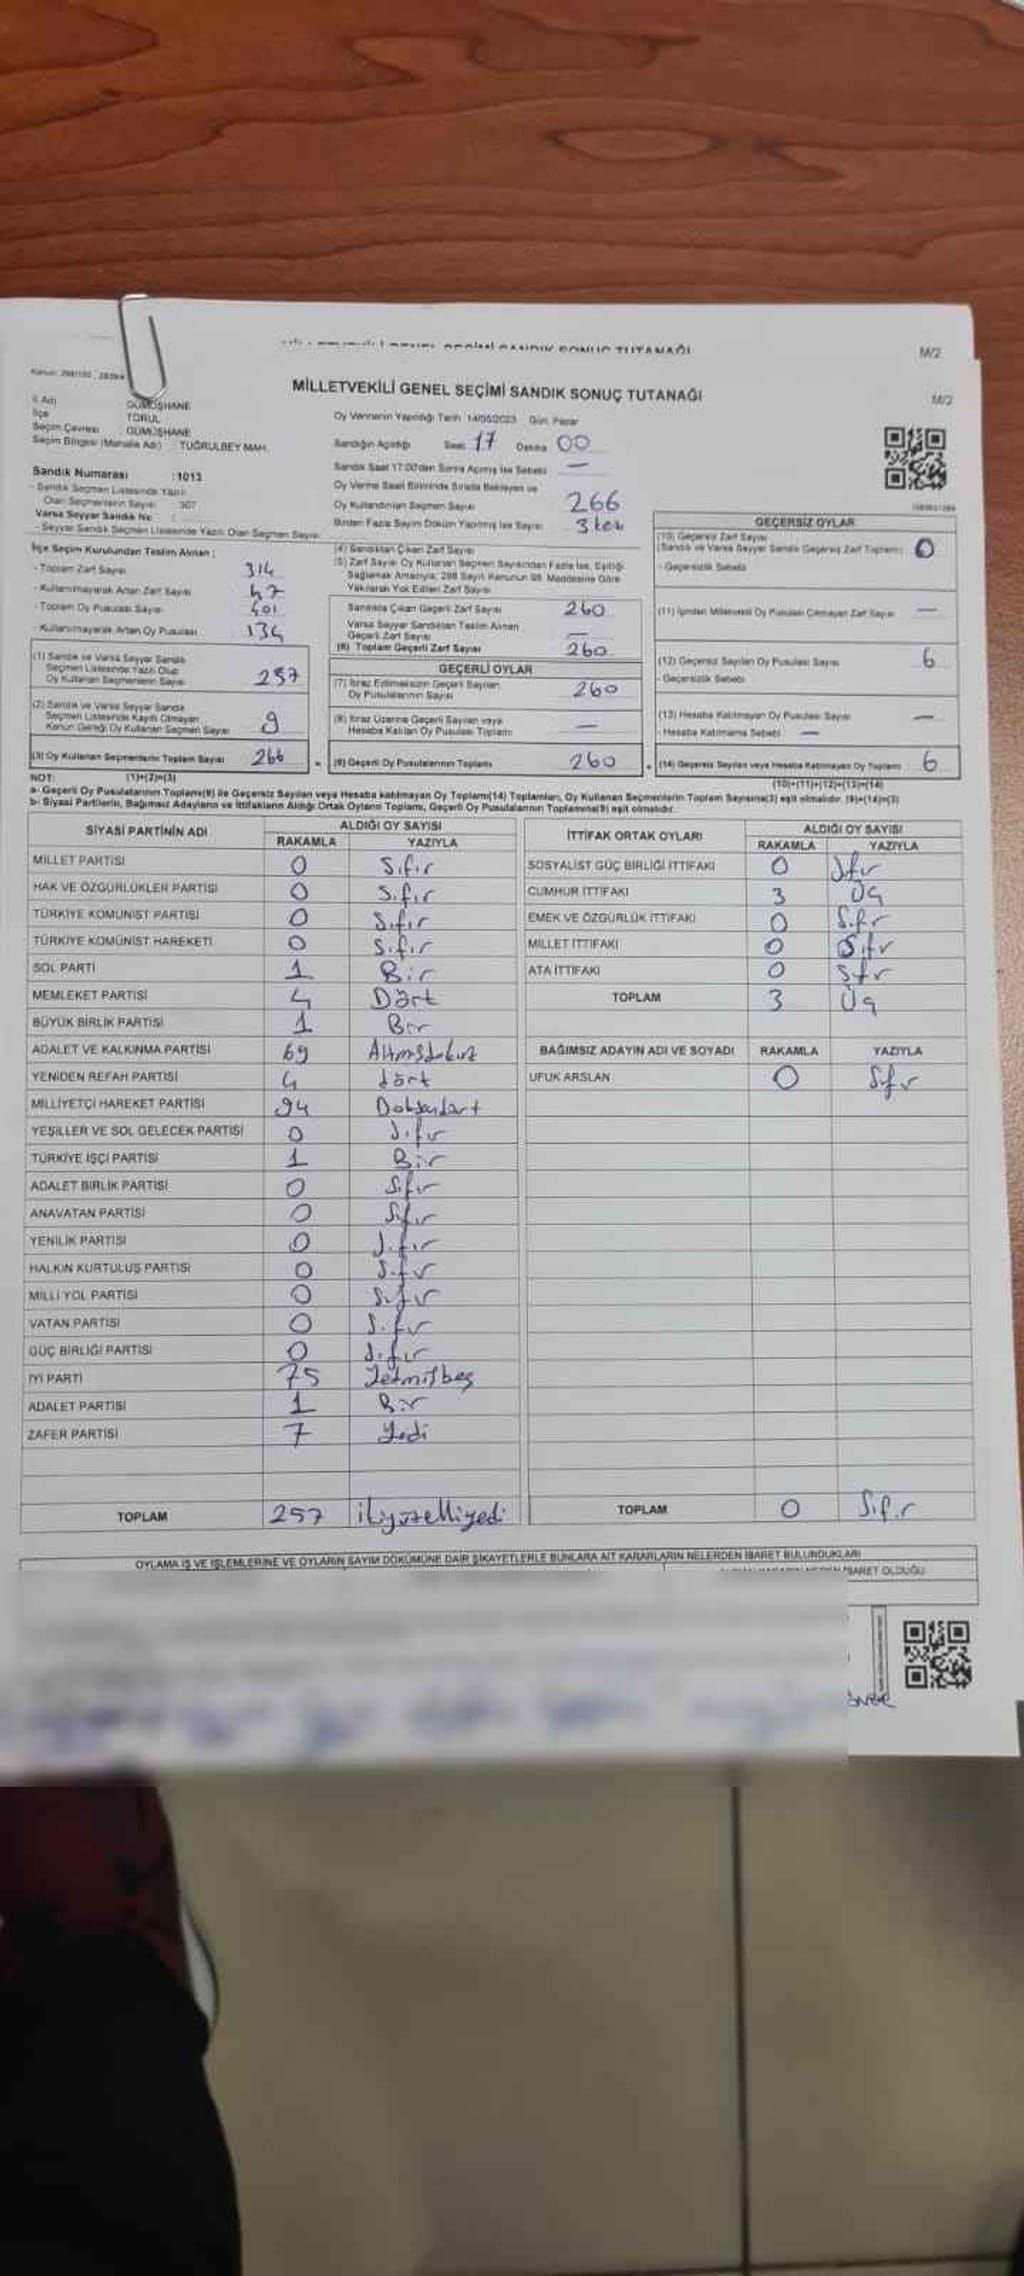 MİLLETVEKİLİ GENEL SEÇİMİ SANDIK SONUÇ TUTANAĞI
M/2
MİLLETVEKİLİ GENEL SEÇİMİ SANDIK SONUÇ TUTANAĞI
M/2
İl Adı GÜMÜŞHANE
İlçe TORUL
Seçim Çevresi GÜMÜŞHANE
Seçim Bölgesi (Mahalle Adı) TUĞRULBEY MAH.
Sandık Numarası :1013
- Sandık Seçmen Listesinde Yazılı
Olan Seçmenlerin Sayısı 307
Varsa Seyyar Sandık No :
- Seyyar Sandık Seçmen Listesinde Yazılı Olan Seçmen Sayısı
Oy Vermenin Yapıldığı Tarih 14/05/2023 Gün Pazar
Sandığın Açıldığı Saat 17 Dakika 00
Sandık Saat 17:00'den Sonra Açılmış İse Sebebi —
Oy Verme Saati Bitiminde Sırada Bekleyen ve
Oy Kullandırılan Seçmen Sayısı 266
Birden Fazla Sayım Döküm Yapılmış İse Sayısı 3 kez
İlçe Seçim Kurulundan Teslim Alınan :
- Toplam Zarf Sayısı 314
- Kullanılmayarak Artan Zarf Sayısı 47
- Toplam Oy Pusulası Sayısı 401
- Kullanılmayarak Artan Oy Pusulası 134
(1) Sandık ve Varsa Seyyar Sandık
Seçmen Listesinde Yazılı Olup
Oy Kullanan Seçmenlerin Sayısı 257
(2) Sandık ve Varsa Seyyar Sandık
Seçmen Listesinde Kayıtlı Olmayan
Kanun Gereği Oy Kullanan Seçmen Sayısı 9
(3) Oy Kullanan Seçmenlerin Toplam Sayısı 266
(4) Sandıktan Çıkan Zarf Sayısı
(5) Zarf Sayısı Oy Kullanan Seçmen Sayısından Fazla İse, Eşitliği
Sağlamak Amacıyla; 298 Sayılı Kanunun 98. Maddesine Göre
Yakılarak Yok Edilen Zarf Sayısı
Sandıkta Çıkan Geçerli Zarf Sayısı 260
Varsa Seyyar Sandıktan Teslim Alınan
Geçerli Zarf Sayısı —
(6) Toplam Geçerli Zarf Sayısı 260
GEÇERLİ OYLAR
(7) İtiraz Edilmeksizin Geçerli Sayılan
Oy Pusulalarının Sayısı 260
(8) İtiraz Üzerine Geçerli Sayılan veya
Hesaba Katılan Oy Pusulası Toplamı —
(9) Geçerli Oy Pusulalarının Toplamı 260
GEÇERSİZ OYLAR
(10) Geçersiz Zarf Sayısı
(Sandık ve Varsa Seyyar Sandık Geçersiz Zarf Toplamı) 0
- Geçersizlik Sebebi
(11) İçinden Milletvekili Oy Pusulası Çıkmayan Zarf Sayısı —
(12) Geçersiz Sayılan Oy Pusulası Sayısı 6
- Geçersizlik Sebebi
(13) Hesaba Katılmayan Oy Pusulası Sayısı —
- Hesaba Katılmama Sebebi —
(14) Geçersiz Sayılan veya Hesaba Katılmayan Oy Toplamı 6
NOT: (1)+(2)=(3)
(10)+(11)+(12)+(13)=(14)
a- Geçerli Oy Pusulalarının Toplamı(9) ile Geçersiz Sayılan veya Hesaba katılmayan Oy Toplamı(14) Toplamları, Oy Kullanan Seçmenlerin Toplam Sayısına(3) eşit olmalıdır. (9)+(14)=(3)
b- Siyasi Partilerin, Bağımsız Adayların ve İttifakların Aldığı Ortak Oyların Toplamı, Geçerli Oy Pusulalarının Toplamına(9) eşit olmalıdır.
SİYASİ PARTİNİN ADI ALDIĞI OY SAYISI
RAKAMLA YAZIYLA
MİLLET PARTİSİ 0 Sıfır
HAK VE ÖZGÜRLÜKLER PARTİSİ 0 Sıfır
TÜRKİYE KOMÜNİST PARTİSİ 0 Sıfır
TÜRKİYE KOMÜNİST HAREKETİ 0 Sıfır
SOL PARTİ 1 Bir
MEMLEKET PARTİSİ 4 Dört
BÜYÜK BİRLİK PARTİSİ 1 Bir
ADALET VE KALKINMA PARTİSİ 69 Altmışdokuz
YENİDEN REFAH PARTİSİ 4 dört
MİLLİYETÇİ HAREKET PARTİSİ 94 Doksandört
YEŞİLLER VE SOL GELECEK PARTİSİ 0 Sıfır
TÜRKİYE İŞÇİ PARTİSİ 1 Bir
ADALET BİRLİK PARTİSİ 0 Sıfır
ANAVATAN PARTİSİ 0 Sıfır
YENİLİK PARTİSİ 0 Sıfır
HALKIN KURTULUŞ PARTİSİ 0 Sıfır
MİLLİ YOL PARTİSİ 0 Sıfır
VATAN PARTİSİ 0 Sıfır
GÜÇ BİRLİĞİ PARTİSİ 0 Sıfır
İYİ PARTİ 75 Yetmişbeş
ADALET PARTİSİ 1 Bir
ZAFER PARTİSİ 7 Yedi
TOPLAM 257 ikiyüzelliyedi
İTTİFAK ORTAK OYLARI ALDIĞI OY SAYISI
RAKAMLA YAZIYLA
SOSYALİST GÜÇ BİRLİĞİ İTTİFAKI 0 Sıfır
CUMHUR İTTİFAKI 3 Üç
EMEK VE ÖZGÜRLÜK İTTİFAKI 0 Sıfır
MİLLET İTTİFAKI 0 Sıfır
ATA İTTİFAKI 0 Sıfır
TOPLAM 3 Üç
BAĞIMSIZ ADAYIN ADI VE SOYADI RAKAMLA YAZIYLA
UFUK ARSLAN 0 Sıfır
TOPLAM 0 Sıfır
OYLAMA İŞ VE İŞLEMLERİNE VE OYLARIN SAYIM DÖKÜMÜNE DAİR ŞİKAYETLERLE BUNLARA AİT KARARLARIN NELERDEN İBARET BULUNDUKLARI
İBARET OLDUĞU